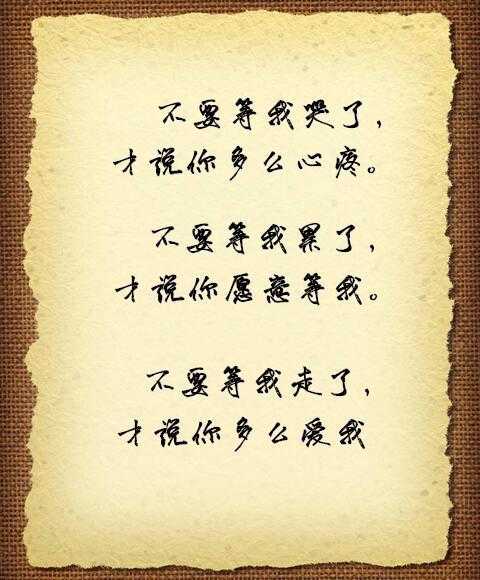 不要等我哭了，
才说你多么心疼。
不要等我累了，
才说你愿意等我。
不要等我走了，
才说你多么爱我